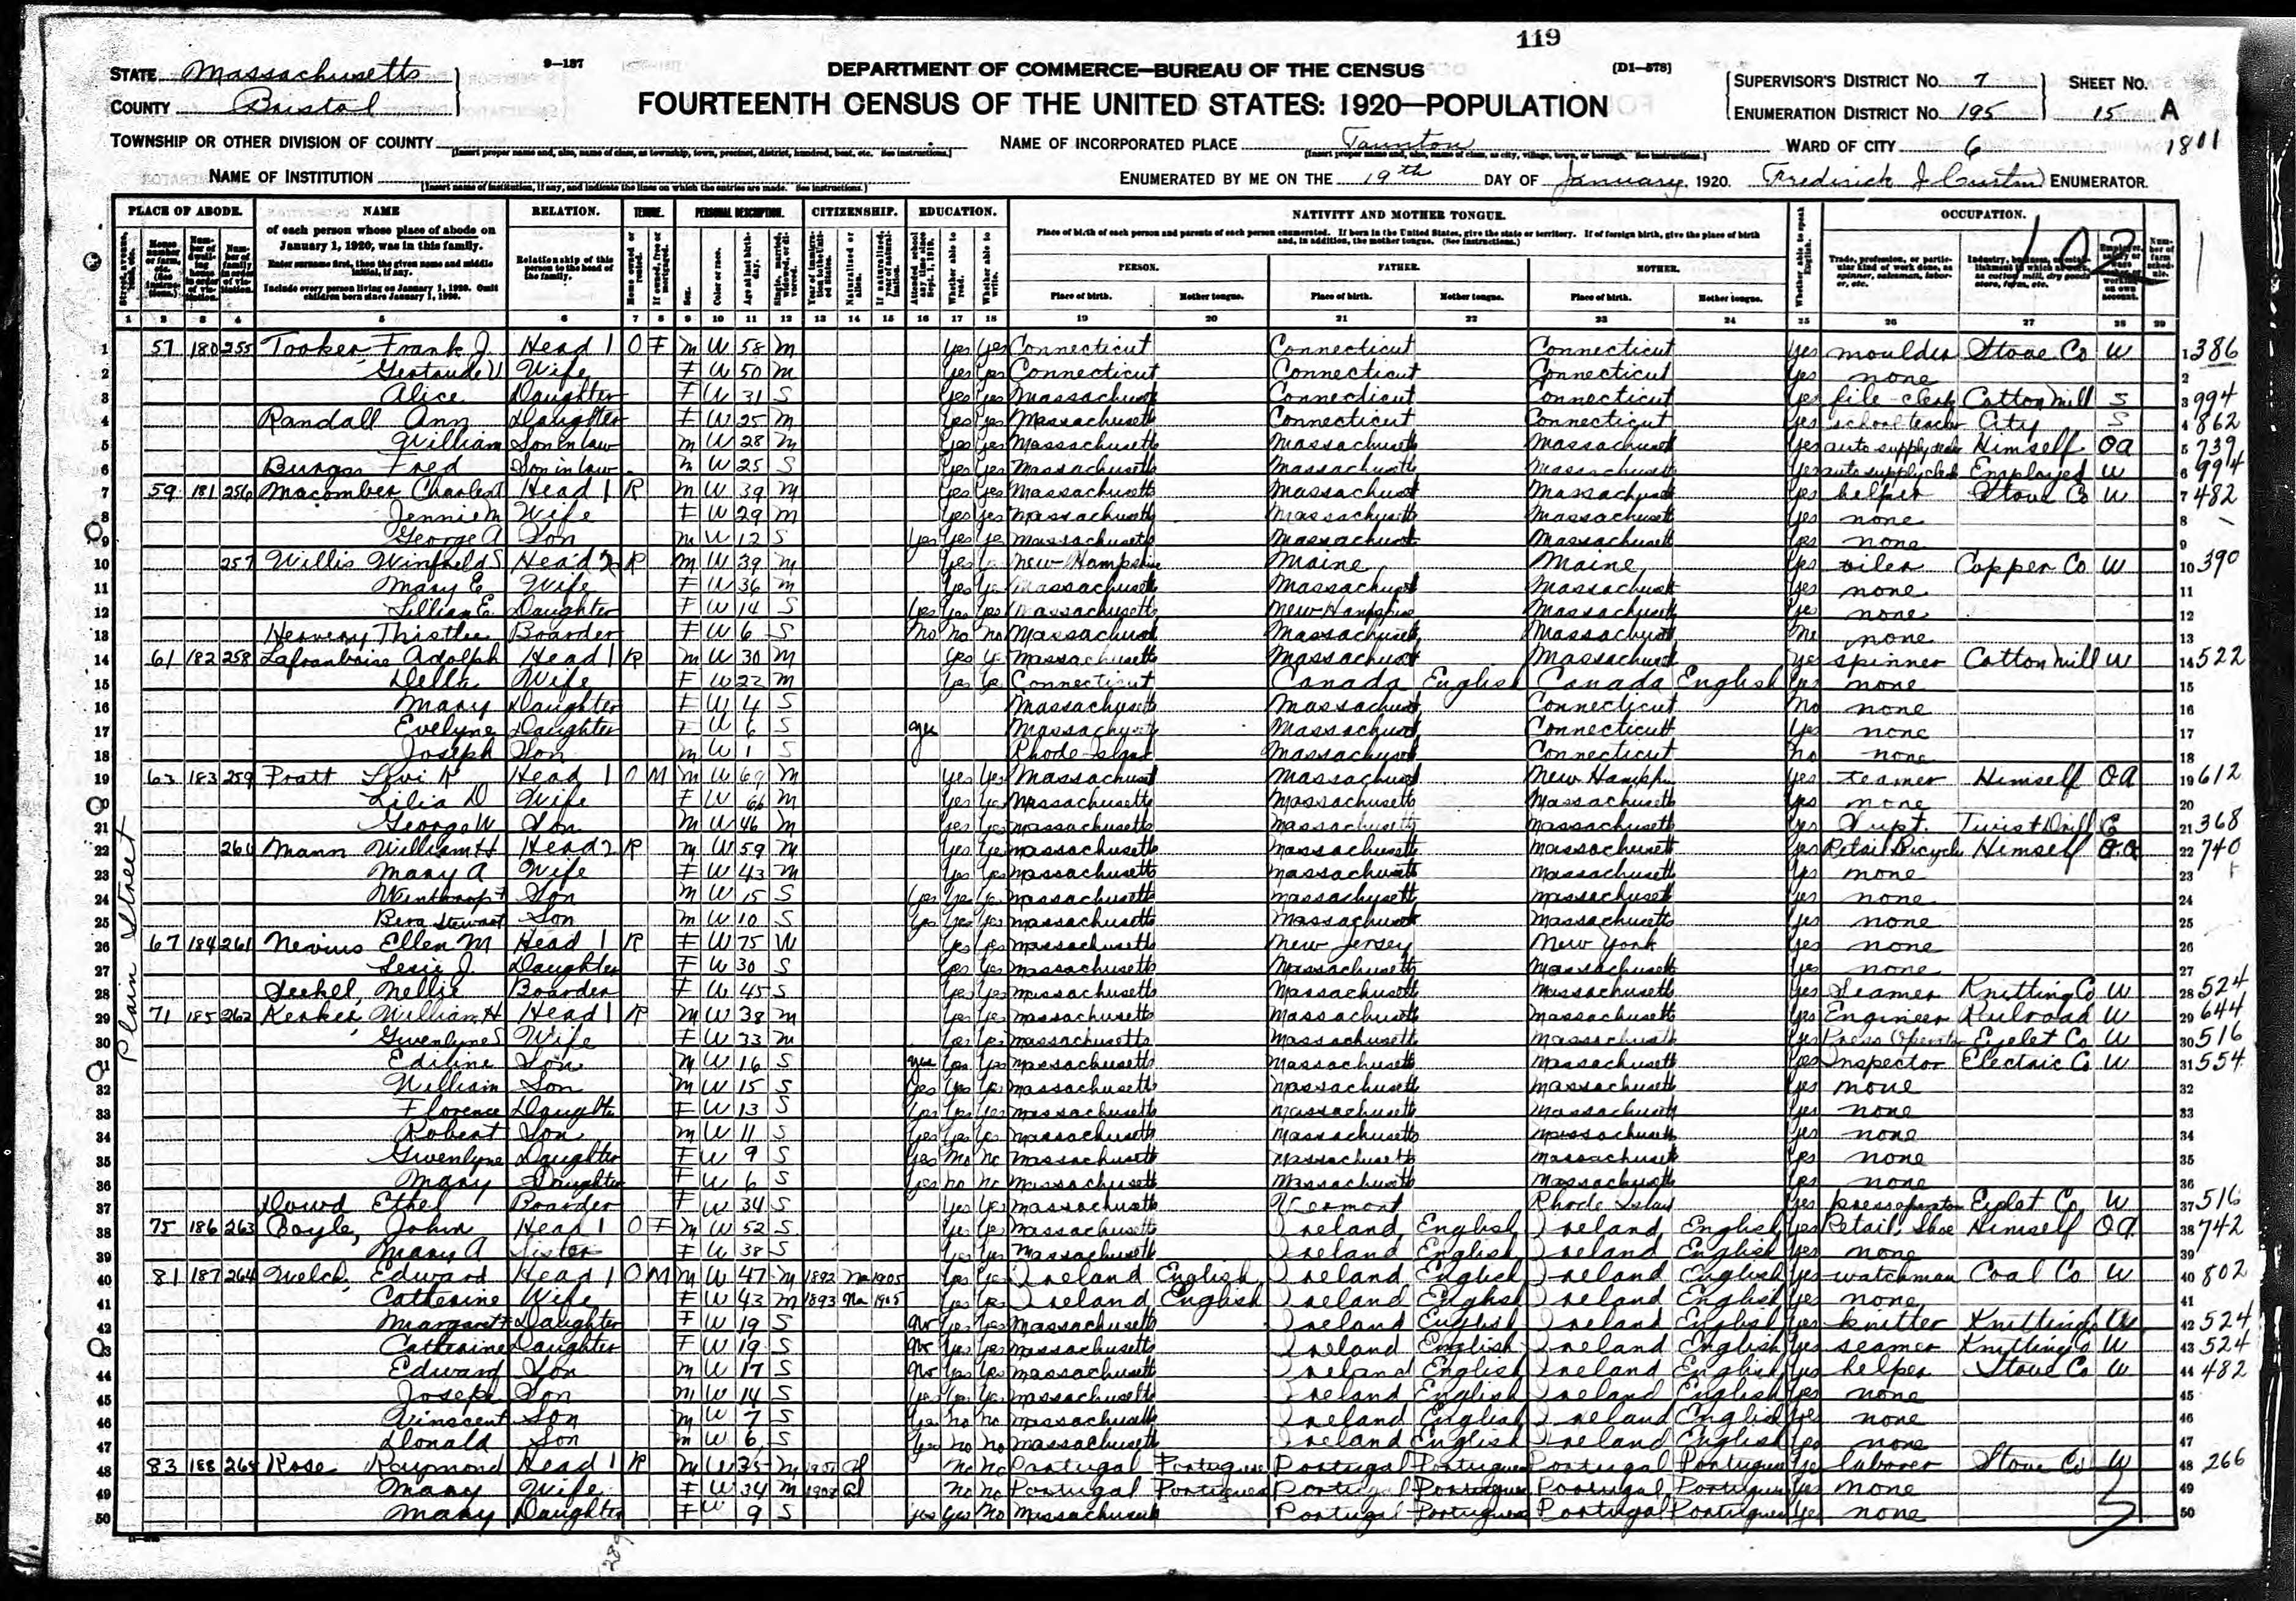 119
STATE Massachusetts
COUNTY Bristol
9-137
DEPARTMENT OF COMMERCE—BUREAU OF THE CENSUS
[D1-578]
FOURTEENTH CENSUS OF THE UNITED STATES: 1920—POPULATION
SUPERVISOR'S DISTRICT No. 7 SHEET No.
ENUMERATION DISTRICT No. 195 15 A
TOWNSHIP OR OTHER DIVISION OF COUNTY
NAME OF INCORPORATED PLACE Taunton
WARD OF CITY 6
1801
NAME OF INSTITUTION
ENUMERATED BY ME ON THE 19th DAY OF January, 1920. Frederick J Curtin ENUMERATOR.
PLACE OF ABODE. NAME RELATION. TENURE. PERSONAL DESCRIPTION. CITIZENSHIP. EDUCATION. NATIVITY AND MOTHER TONGUE. OCCUPATION.
of each person whose place of abode on January 1, 1920, was in this family.
Enter surname first, then the given name and middle initial, if any.
Include every person living on January 1, 1920. Omit children born since January 1, 1920.
Relationship of this person to the head of the family.
Place of birth of each person and parents of each person enumerated. If born in the United States, give the state or territory. If of foreign birth, give the place of birth and, in addition, the mother tongue. (See Instructions.)
PERSON. FATHER. MOTHER.
Place of birth. Mother tongue. Place of birth. Mother tongue. Place of birth. Mother tongue.
1 2 3 4 5 6 7 8 9 10 11 12 13 14 15 16 17 18 19 20 21 22 23 24 25 26 27 28 29
Plain Street
1 57 180 255 Tooker, Frank J. Head 1 O F M W 58 M Yes Yes Connecticut Connecticut Connecticut Yes moulder Stove Co W 1 386
2 Gertrude V Wife F W 50 M Yes Yes Connecticut Connecticut Connecticut Yes none 2
3 Alice Daughter F W 31 S Yes Yes Massachusett Connecticut Connecticut Yes file-clerk Cotton Mill S 3 994
4 Randall Ann Daughter F W 25 M Yes Yes Massachusett Connecticut Connecticut Yes school teacher City S 4 862
5 William Son in law M W 28 M Yes Yes Massachusetts Massachusetts Massachusett Yes auto supply dealer Himself OA 5 739
6 Fred Son in law M W 25 S Yes Yes Massachusetts Massachusetts Massachusett Yes auto supply clerk Employed W 6 994
7 59 181 256 Macomber Charles Head 1 R M W 39 M Yes Yes Massachusetts Massachusett Massachusett Yes helper Stove Co W 7 482
8 Jennie M Wife F W 29 M Yes Yes Massachusetts Massachusetts Massachusett Yes none 8
9 George A Son M W 12 S Yes Yes Ye Massachusetts Massachusett Massachusett Yes none 9
10 257 Willis Winfield S Head 2 R M W 39 M Yes New Hampshire Maine Maine Yes oiler Copper Co W 10 390
11 Mary E Wife F W 36 M Yes Yes Massachusetts Massachusett Massachusett Yes none 11
12 Lillian E. Daughter F W 14 S Yes Yes Yes Massachusetts New Hampshire Massachusett Yes none 12
13 Thistle Boarder F W 6 S No No No Massachusett Massachusett Massachusett none 13
14 61 182 258 Laframboise Adolph Head 1 R M W 30 M Yes Y Massachusetts Massachusett Massachusett Yes spinner Cotton Mill W 14 522
15 Della Wife F W 22 M Yes Ye Connecticut Canada English Canada English Yes none 15
16 Mary Daughter F W 4 S Massachusetts Massachusett Connecticut No none 16
17 Evelyne Daughter F W 6 S Yes Massachusetts Massachusett Connecticutt Yes none 17
18 Joseph Son M W 1 S Rhode Islan Massachusett Connecticut No none 18
19 63 183 259 Pratt Levi R Head 1 O M M W 69 M Yes Yes Massachusett Massachusett New Hampshr Yes teamer Himself OA 19 612
20 Lilia D Wife F W 66 M Yes Yes Massachusetts Massachusetts Massachusetts Yes none 20
21 George W Son M W 46 M Yes Yes Massachusetts Massachusetts Massachusetts Yes Supt. Twist Drill E 21 368
22 260 Mann William H Head 2 R M W 59 M Yes Ye Massachusetts Massachusetts Massachusett Yes Retail Bicycle Himself O.A 22 740
23 Mary A Wife F W 43 M Yes Yes Massachusetts Massachusetts Massachusett Yes none 23
24 Winthrop F Son M W 15 S Yes Yes Ye Massachusetts Massachusett Massachusett Yes none 24
25 Stewart Son M W 10 S Yes Yes Yes Massachusetts Massachusett Massachusetts Yes none 25
26 67 184 261 Nevius Ellen M Head 1 R F W 75 W Yes Yes Massachusetts New Jersey New York Yes none 26
27 J. Daughter F W 30 S Yes Yes Massachusetts Massachusetts Massachusett Yes none 27
28 Nellie Boarder F W 45 S Yes Yes Massachusetts Massachusetts Massachusett Yes Seamer Knitting Co W 28 524
29 71 185 262 Kerker William H Head 1 R M W 38 M Yes Yes Massachusetts Massachusetts Massachusett Yes Engineer Railroad W 29 644
30 Gwenlyne S Wife F W 33 M Yes Yes Massachusetts Massachusett Massachusett Yes Press Operator Eyelet Co W 30 516
31 Ediline Son M W 16 S Yes Yes Yes Massachusetts Massachusett Massachusett Yes Inspector Electric Co W 31 554
32 William Son M W 15 S Yes Yes Ye Massachusetts Massachusett Massachusett Yes none 32
33 Florence Daughter F W 13 S Yes Yes Yes Massachusetts Massachusett Massachusett Yes none 33
34 Robert Son M W 11 S Yes Yes Yes Massachusett Massachusetts Massachusett Yes none 34
35 Gwenlyne Daughter F W 9 S Yes No No Massachusett Massachusett Massachusett Yes none 35
36 Mary Daughter F W 6 S Yes No No Massachusett Massachusetts Massachusetts Yes none 36
37 Dowd Ethel Boarder F W 34 S Yes Yes Massachusetts Vermont Rhode Islan Yes press operator Eyelet Co W 37 516
38 75 186 263 Coyle, John Head 1 O F M W 52 S Yes Yes Massachusetts Ireland English Ireland English Yes Retail Shoe Himself OA 38 742
39 Mary A Sister F W 38 S Yes Yes Massachusett Ireland English Ireland English Yes none 39
40 81 187 264 Welch, Edward Head 1 O M M W 47 M 1892 Na 1905 Yes Yes Ireland English Ireland English Ireland English Yes watchman Coal Co W 40 802
41 Catherine Wife F W 43 M 1893 Na 1905 Yes Yes Ireland English Ireland English Ireland English Yes none 41
42 Margarett Daughter F W 19 S No Yes Yes Massachusetts Ireland English Ireland English Yes knitter Knitting Co W 42 524
43 Catherine Daughter F W 19 S No Yes Yes Massachusetts Ireland English Ireland English Yes seamer Knitting Co W 43 524
44 Edward Son M W 17 S No Yes Yes Massachusetts Ireland English Ireland English Yes helper Stove Co W 44 482
45 Joseph Son M W 14 S Yes Yes Yes Massachusetts Ireland English Ireland English Yes none 45
46 Vinscent Son M W 7 S Yes No No Massachusetts Ireland English Ireland English Yes none 46
47 Donald Son M W 6 S Yes No No Massachusetts Ireland English Ireland English Yes none 47
48 83 188 265 Rose Raymond Head 1 R M W 35 M Al No No Portugal Portuguese Portugal Portuguese Portugal Portuguese Ye laborer Stove Co W 48 266
49 Mary Wife F W 34 M 1908 Al No No Portugal Portuguese Portugal Portuguese Portugal Portuguese Yes none 49
50 Mary Daughter F W 9 S Yes Yes No Massachusett Portugal Portuguese Portugal Portuguese Ye none 50
289